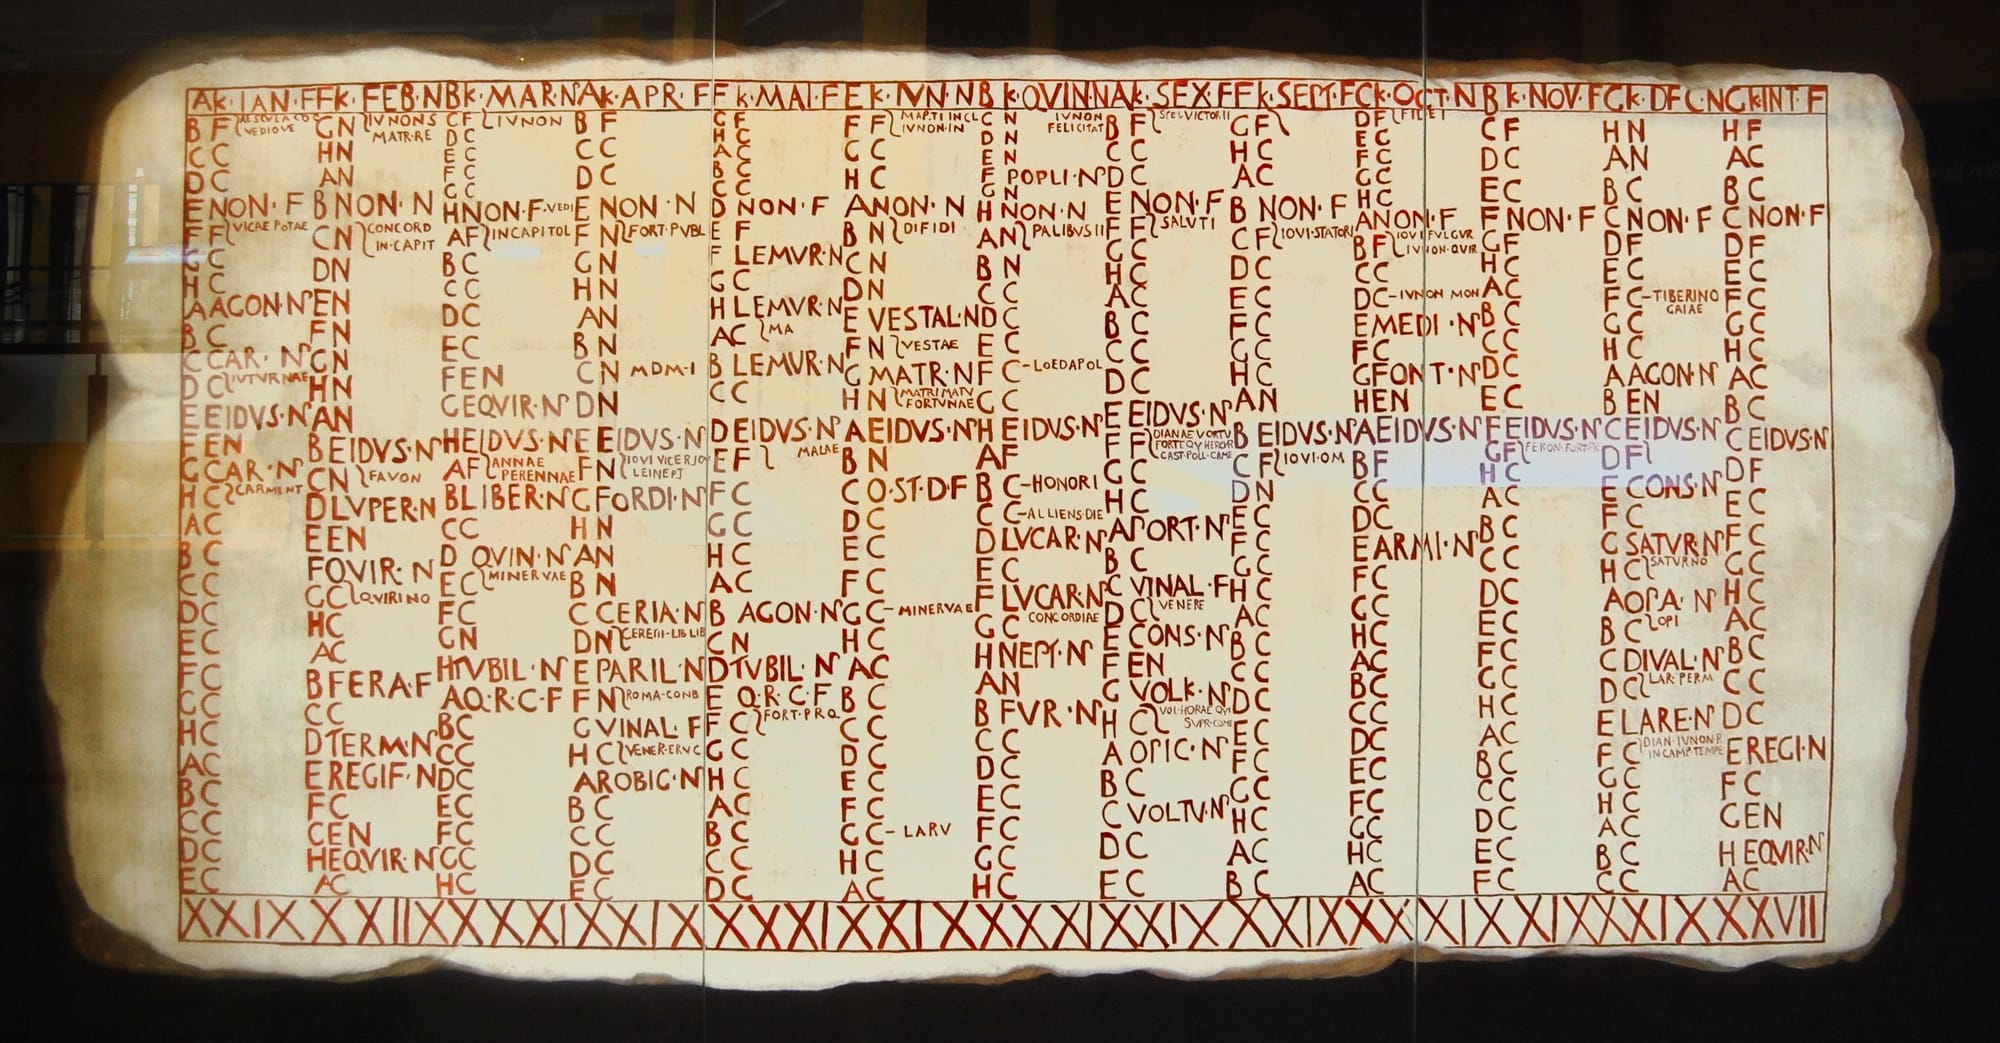 AK·IAN·F FK·FEB·N BK·MAR·N AK·APR·F FK·MAI·F EK·IVN·N BK·QVIN·N AK·SEX·F FK·SEPT·F CK·OCT·N BK·NOV·F GK·DEC·N GK·INT·F
B F
VEDIOVE
C C
D C
E NON·F
F F VICAE POTAE
G C
H C
A AGON·N
B C
C CAR·N
D C IVTVRNAE
E EIDVS·N
F EN
G CAR·N
H C CARMENT
A C
B C
C C
D C
E C
F C
G C
H C
A C
B C
C C
D C
E C
G N IVNON S
MATR·RE
H N
A N
B NON·N
C N CONCORD
IN·CAPIT
D N
E N
F N
G N
H N
A N
B EIDVS·N
C N FAVON
D LVPER·N
E EN
F QVIR·N
G C QVIRINO
H C
A C
B FERA·F
C C
D TERM·N
E REGIF·N
F C
G EN
H EQVIR·N
A C
C F IVNON
D C
E C
F C
G C
H NON·F·VEDI
A F IN CAPITOL
B C
C C
D C
E C
F EN
G EQVIR·N
H EIDVS·N
A F ANNAE
PERENNAE
B LIBER·N
C C
D QVIN·N
E C MINERVAE
F C
G N
H TVBIL·N
A Q·R·C·F
B C
C C
D C
E C
F C
G C
H C
B F
C C
D C
E NON·N
F N FORT·PVBL
G N
H N
A N
B N
C N M D M·I
D N
E EIDVS·N
F N IOVI VICE
LEINEPT
G FORDI·N
H N
A N
B N
C CERIA·N
D N CERERI·LIB LIB
E PARIL·N
F N ROMA·COND
G VINAL·F
H C VENER·ERVC
A ROBIG·N
B C
C C
D C
E C
G F
H C
A C
B C
C C
D NON·F
E F
F LEMVR·N
G C
H LEMVR·N
A C MA
B LEMVR·N
C C
D EIDVS·N
E F MAIAE
F C
G C
H C
A C
B AGON·N
C N
D TVBIL·N
E Q·R·C·F
F C FORT·P·R·Q
G C
H C
A C
B C
C C
D C
F F MARTI IN CL
IVNON·IN
G C
H C
A NON·N
B N DI FIDI
C N
D N
E VESTAL·N
F N VESTAE
G MATR·N
H N MATRI MATV
FORTVNAE
A EIDVS·N
B N
C Q·ST·D·F
D C
E C
F C
G C–MINERVAE
H C
A C
B C
C C
D C
E C
F C
G C–LARV
H C
A C
C N IVNON
FELICITAT
D N
E N
F POPLI·N
G N
H NON·N
A N PALIBVS II
B N
C C
D C
E C
F C–LOEDAPOL
G C
H EIDVS·N
A F
B C–HONORI
C C–ALLIENS·DIE
D LVCAR·N
E C
F LVCAR·N
G C CONCORDIAE
H NEPT·N
A N
B FVR·N
C C
D C
E C
F C
G C
H C
B F
C C
D C
E NON·F
F F SALVTI
G C
H C
A C
B C
C C
D C
E EIDVS·N
F F DIANAE VORTV
CAST·POLL·CAME
G C
H C
A PORT·N
B C
C VINAL·F
D C VENERE
E CONS·N
F EN
G VOLK·N
H C
A OPIC·N
B C
C VOLTV·N
D C
E C
G F
H C
A C
B NON·F
C F IOVI·STATORI
D C
E C
F C
G C
H C
A N
B EIDVS·N
C F IOVI·OM
D N
E C
F C
G C
H C
A C
B C
C C
D C
E C
F C
G C
H C
A C
B C
D F
E C
F C
G C
H C
A NON·F
B F IOVI FVLGVR
IVNON·QVIR
C C
D C–IVNON MON
E MEDI·N
F C
G FONT·N
H EN
A EIDVS·N
B F
C C
D C
E ARMI·N
F C
G C
H C
A C
B C
C C
D C
E C
F C
G C
H C
A C
C F
D C
E C
F NON·F
G F
H C
A C
B C
C C
D C
E C
F EIDVS·N
G F
H C
A C
B C
C C
D C
E C
F C
G C
H C
A C
B C
C C
D C
E C
F C
H N
A N
B C
C NON·F
D F
E C
F C–TIBERINO
GAIAE
G C
H C
A AGON·N
B EN
C EIDVS·N
D F
E CONS·N
F C
G SATVR·N
H C SATVRNO
A OPA·N
B C OPI
C DIVAL·N
D C LAR·PERM
E LARE·N
F C DIAN·IVNON·R
IN CAMP·TEMPE
G C
H C
A C
B C
C C
H F
A C
B C
C NON·F
D F
E C
F C
G C
H C
A C
B C
C EIDVS·N
D F
E C
F C
G C
H C
A C
B C
C C
D C
E REGI·N
F C
G EN
H EQVIR·N
A C
XXIX XXVIII XXXI XXIX XXXI XXIX XXXI XXIX XXIX XXXI XXIX XXIX XXVII